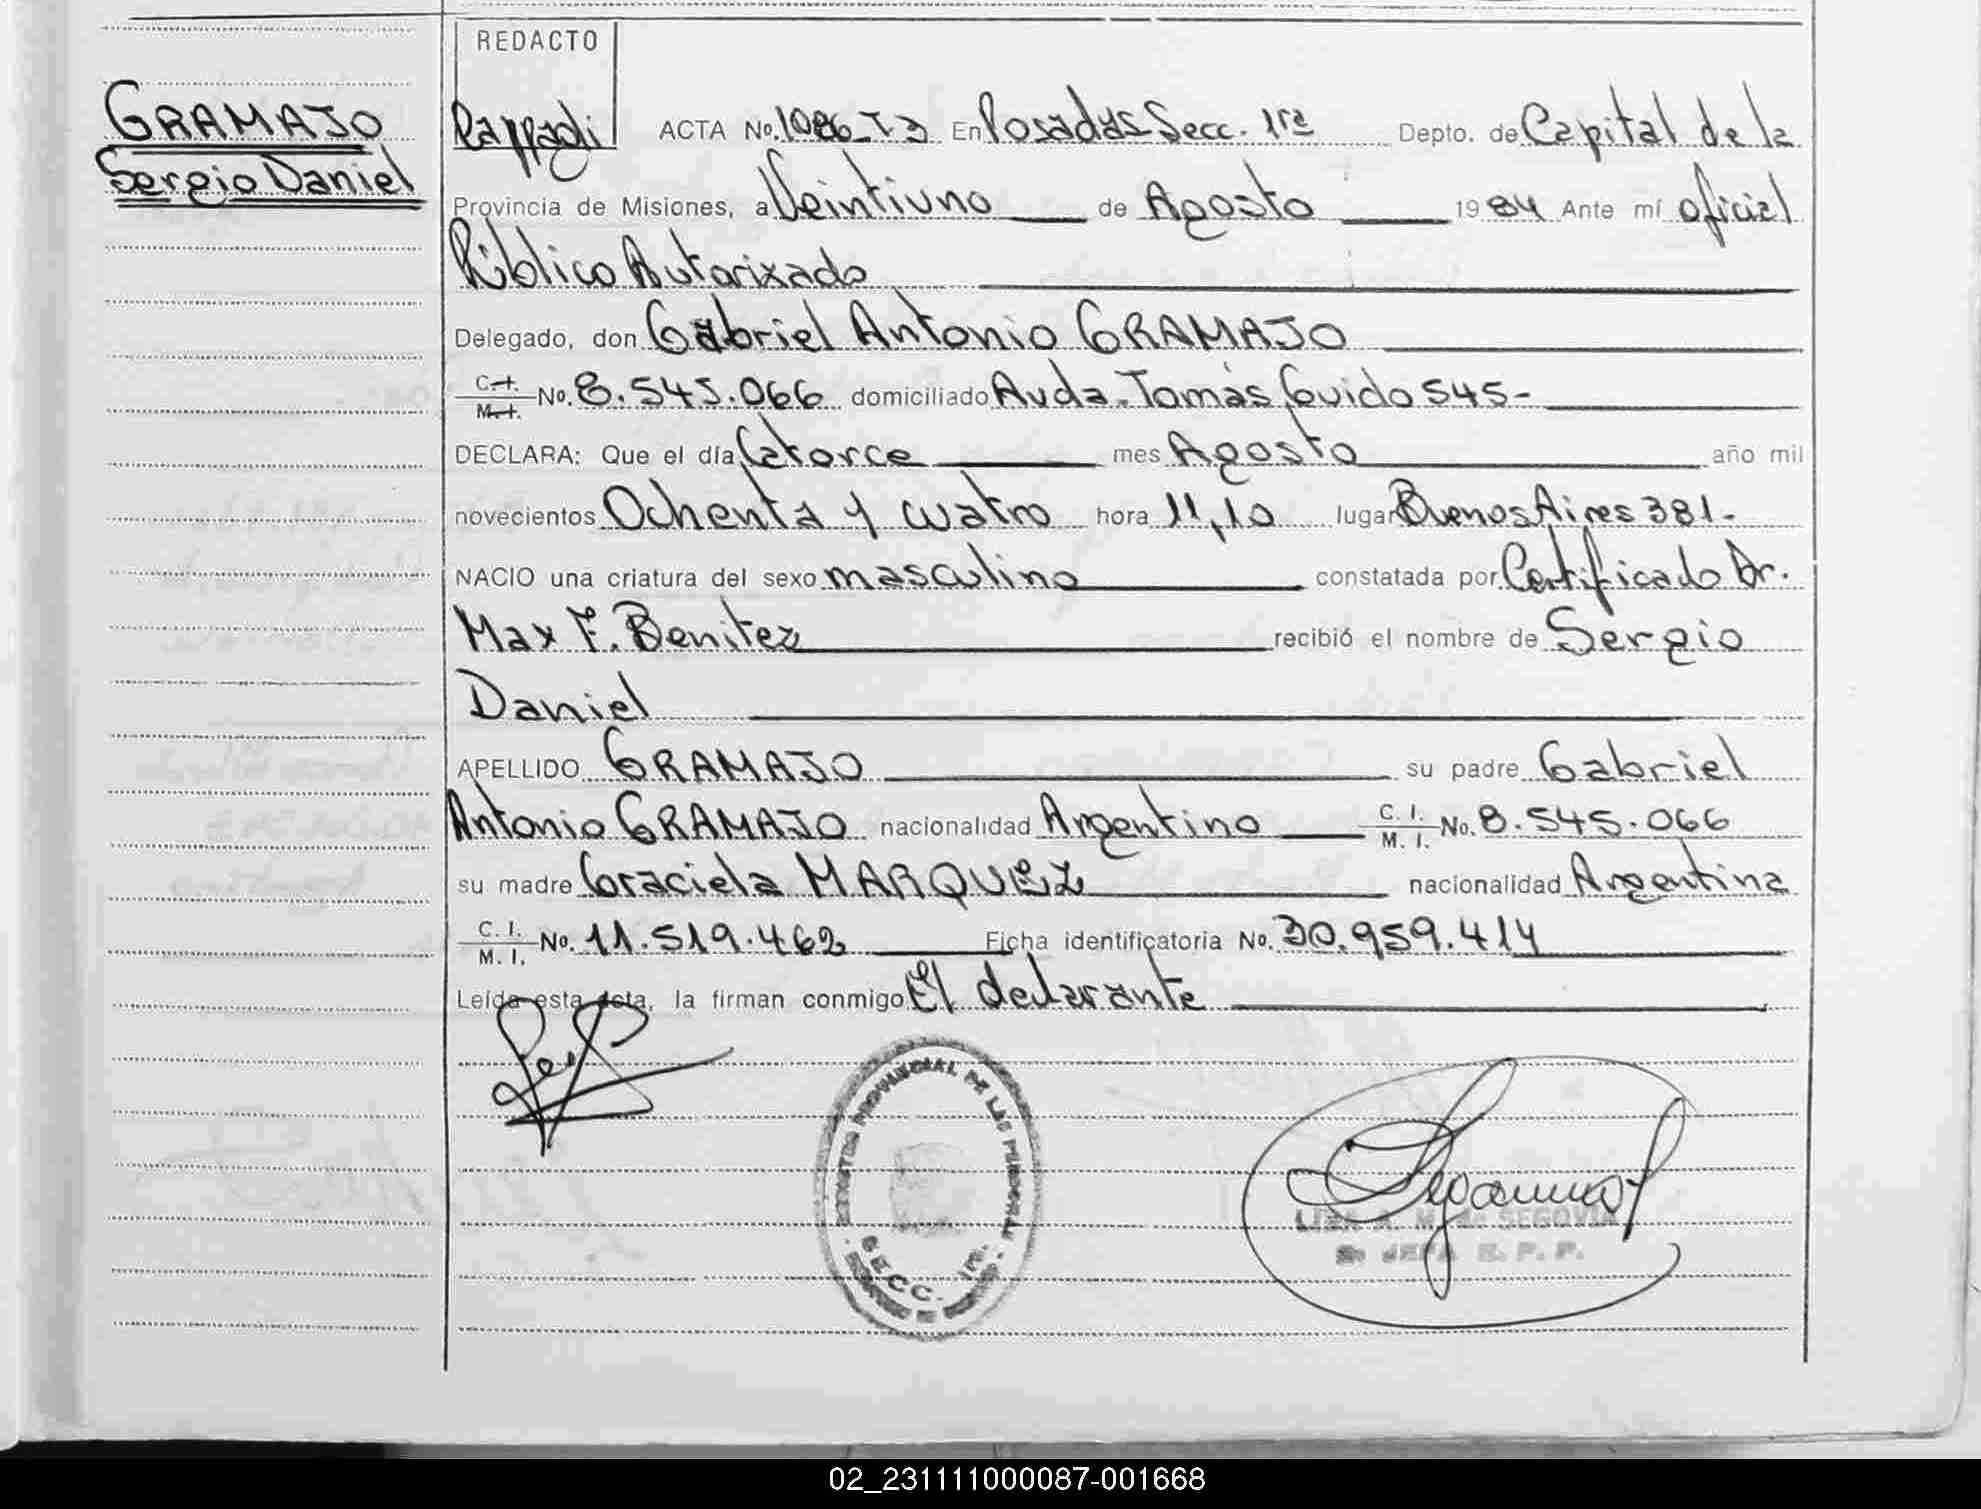 REDACTO
GRAMAJO
Sergio Daniel
ACTA No. 1086-T3 En Posadas Secc. 1ra Depto. de Capital de la
Provincia de Misiones, a Veintiuno de Agosto 1984 Ante mí oficial
Público Autorizado
Delegado, don Gabriel Antonio GRAMAJO
C.I. M.I. No. 8.545.066 domiciliado Avda. Tomás Guido 545-
DECLARA: Que el día Catorce mes Agosto año mil
novecientos Ochenta y cuatro hora 11,10 lugar Buenos Aires 381-
NACIO una criatura del sexo masculino constatada por Certificado Dr.
Max F. Benitez recibió el nombre de Sergio
Daniel
APELLIDO GRAMAJO su padre Gabriel
Antonio GRAMAJO nacionalidad Argentino C. I. M. I. No. 8.545.066
su madre Graciela MARQUEZ nacionalidad Argentina
C. I. M. I. No. 11.519.462 Ficha identificatoria No. 30.959.414
Leída esta acta, la firman conmigo El declarante
REGISTRO PROVINCIAL DE LAS PERSONAS
SECC. 1ra.
M. de SEGOVIA
JEFA R. P. P.
02_231111000087-001668